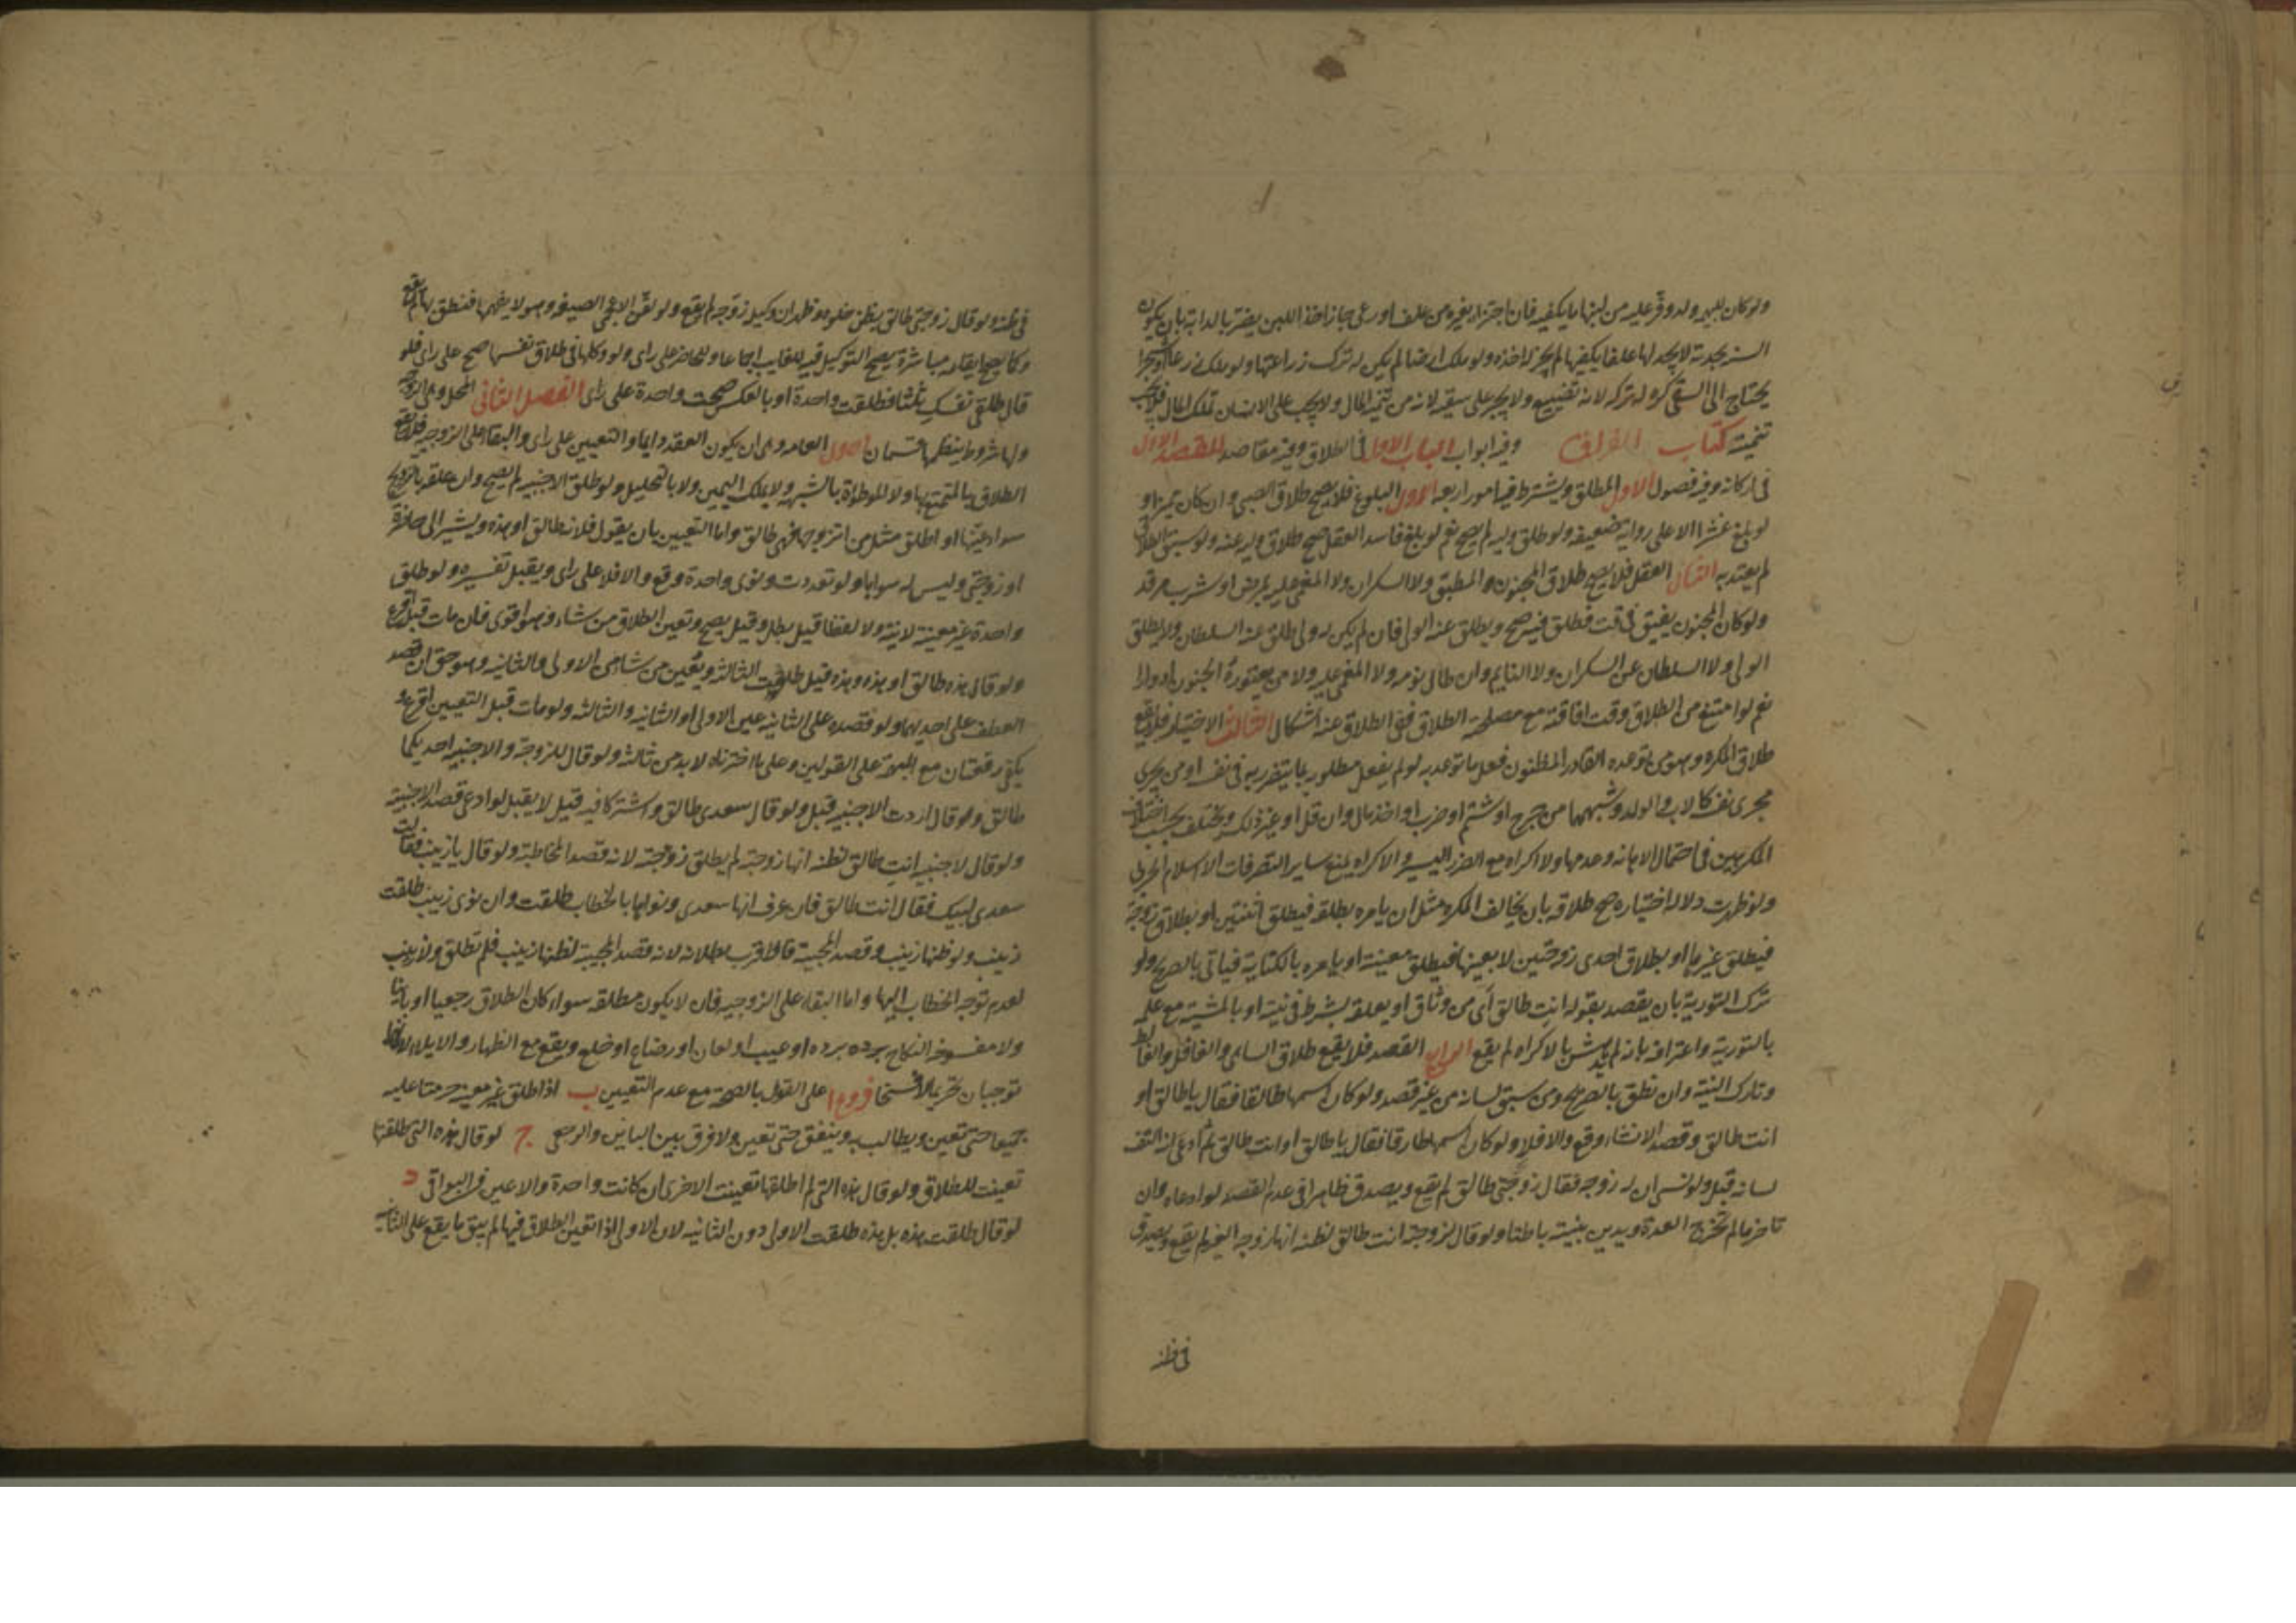 ولو كان للبهيمة ولد وفر عليه من لبنها ما يكفيه فان اجتزا بغيره من علف او رعى جاز اخذ اللبن يضر بالدابة بان يكون
السنة مجدبة لا يجد لها علفا يكفيها لم يجز له اخذه ولو ملك ارضا لم يكن له ترك زراعتها ولو ملك زرعا او شجرا
يحتاج الى السقي كره له تركه لانه تضييع ولا يجبر على سقيه لانه من تنمية المال ولا يجب على الانسان تملك المال فلا يجب
تنميته كتاب الفراق وفيه ابواب الباب الاول في الطلاق وفيه مقاصد المقصد الاول
في اركانه وفيه فصول الاول المطلق ويشترط فيه امور اربعة الاول البلوغ فلا يصح طلاق الصبي وان كان مميزا و
لو بلغ عشرا الا على رواية ضعيفة ولو طلق وليه لم يصح نعم لو بلغ فاسد العقل صح طلاق وليه عنه ولو سبق الطلاق
لم يعتد به الثاني العقل فلا يصح طلاق المجنون المطبق ولا السكران ولا المغمى عليه بمرض او شرب مرقد
ولو كان المجنون يفيق في وقت فطلق فيه صح ويطلق عنه الولي فان لم يكن له ولي طلق عنه السلطان ولا يطلق
الولي ولا السلطان عن السكران ولا النايم وان طال نومه ولا المغمى عليه ولا من يعتوره الجنون ادوارا
نعم لو امتنع من الطلاق وقت افاقته مع مصلحة الطلاق ففي الطلاق عنه اشكال الثالث الاختيار فلا يقع
طلاق المكره وهو من توعده القادر المظنون فعل ما توعد به لو لم يفعل مطلوبه بما يتضرر به في نفسه او من يجري
مجرى نفسه كالاب والولد وشبههما من جرح او شتم او ضرب او اخذ مال وان قل او غير ذلك ويختلف بحسب اختلاف
المكرهين في احتمال الاهانة وعدمها ولا اكراه مع الضرر اليسير والاكراه يمنع ساير التصرفات الا اسلام الحربي
ولو ظهرت دلالة اختياره صح طلاقه بان يخالف المكره مثل ان يامره بطلقة فيطلق اثنتين او بطلاق زوجة
فيطلق غيرها او بطلاق احدى زوجتين لا بعينها فيطلق معينة او يامره بالكناية فياتي بالصريح ولو
ترك التورية بان يقصد بقوله انت طالق اي من وثاق او يعلقه بشرط في نيته او بالمشية مع علمه
بالتورية واعترافه بانه لم يدهش بالاكراه لم يقع الرابع القصد فلا يقع طلاق الساهي والغافل والغالط
وتارك النية وان نطق بالصريح ومن سبق لسانه من غير قصد ولو كان اسمها طالقا فقال يا طالق او
انت طالق وقصد الانشاء وقع والا فلا ولو كان اسمها طارقا فقال يا طالق او انت طالق ثم ادعى انه التف
لسانه قبل ولو نسي ان له زوجة فقال زوجتي طالق لم يقع ويصدق ظاهرا في عدم القصد لو ادعاه وان
تاخر ما لم تخرج العدة ويدين بنيته باطنا ولو قال لزوجته انت طالق لظنه انها زوجة الغير لم يقع ويصدق
في ظنه
في ظنه ولو قال زوجتي طالق بظن خلوه وظهر ان وكيله زوجه لم يقع ولو لقن الاعجمي الصيغة وهو لا يفهمها فنطق بها لم يقع
وكما يصح ايقاعه مباشرة يصح التوكيل فيه للغايب اجماعا وللحاضر على راي ولو وكلها في طلاق نفسها صح على راي فلو
قال طلقي نفسك ثلثا فطلقت واحدة او بالعكس صحت واحدة على راي الفصل الثاني المحل وهي الزوجة
ولها شروط ينظمها قسمان الاول العامة وهي ان يكون العقد دايما والتعيين على راي والبقاء على الزوجية فلا يقع
الطلاق بالمتمتع بها ولا للموطوءة بالشبهة ولا بملك اليمين ولا بالتحليل ولو طلق الاجنبية لم يصح وان علقه بالتزويج
سواء عينها او اطلق مثل من اتزوجها فهي طالق واما التعيين بان يقول فلانة طالق او هذه ويشير الى حاضرة
او زوجتي وليس له سواها ولو تعددت ونوى واحدة وقع والا فلا على راي ويقبل تفسيره ولو طلق
واحدة غير معينة لا نية ولا لفظا قيل بطل وقيل يصح وتعين الطلاق من شاء وهو اقوى فان مات قبله اقرع
ولو قال هذه طالق او هذه وهذه قيل طلقت الثالثة ويعين من شاء من الاولى والثانية وهو حق ان قصد
العطف على احديهما ولو قصده على الثانية عين الاولى او الثانية والثالثة ولو مات قبل التعيين اقرع و
يكفي رقعتان مع المبهمة على القولين وعلى ما اخترناه لا بد من ثالثة ولو قال للزوجة والاجنبية احديكما
طالق وقال اردت الاجنبية قبل ولو قال سعدى طالق واشتركا فيه قيل لا يقبل لو ادعى قصد الاجنبية
ولو قال لاجنبية انت طالق لظنه انها زوجته لم يطلق زوجته لانه قصد المخاطبة ولو قال يا زينب فقالت
سعدى لبيك فقال انت طالق فان عرف انها سعدى ونواها بالخطاب طلقت وان نوى زينب طلقت
زينب ولو ظنها زينب وقصد المجيبة فالاقرب بطلانه لانه قصد المجيبة لظنها زينب فلم تطلق ولا زينب
لعدم توجه الخطاب اليها واما البقاء على الزوجية فان لا يكون مطلقة سواء كان الطلاق رجعيا او باينا
ولا مفسوخة النكاح بردة او عيب او لعان او رضاع او خلع ويقع مع الظهار والايلاء لانهما لا
توجبان تحريما فسخا فروع ا على القول بالصحة مع عدم التعيين ب اذا طلق غير معينة حرمتا عليه
جميعا حتى تعين ويطالب به وينفق حتى تعين ولا فرق بين الباين والرجعي ج لو قال هذه التي طلقتها
تعينت للطلاق ولو قال هذه التي لم اطلقها تعينت الاخرى ان كانت واحدة والا عين في البواقي د
لو قال طلقت هذه بل هذه طلقت الاولى دون الثانية لان الاولى اذا تعين الطلاق فيها لم يبق ما يقع على الثانية